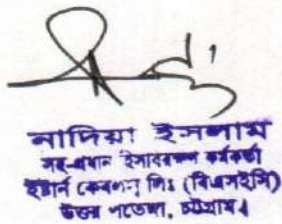 নাদিয়া ইসলাম
সহ-প্রধান হিসাবরক্ষণ কর্মকর্তা
ইস্টার্ন কেবলস্ লিঃ (বিএসইসি)
উত্তর পতেঙ্গা, চট্টগ্রাম।